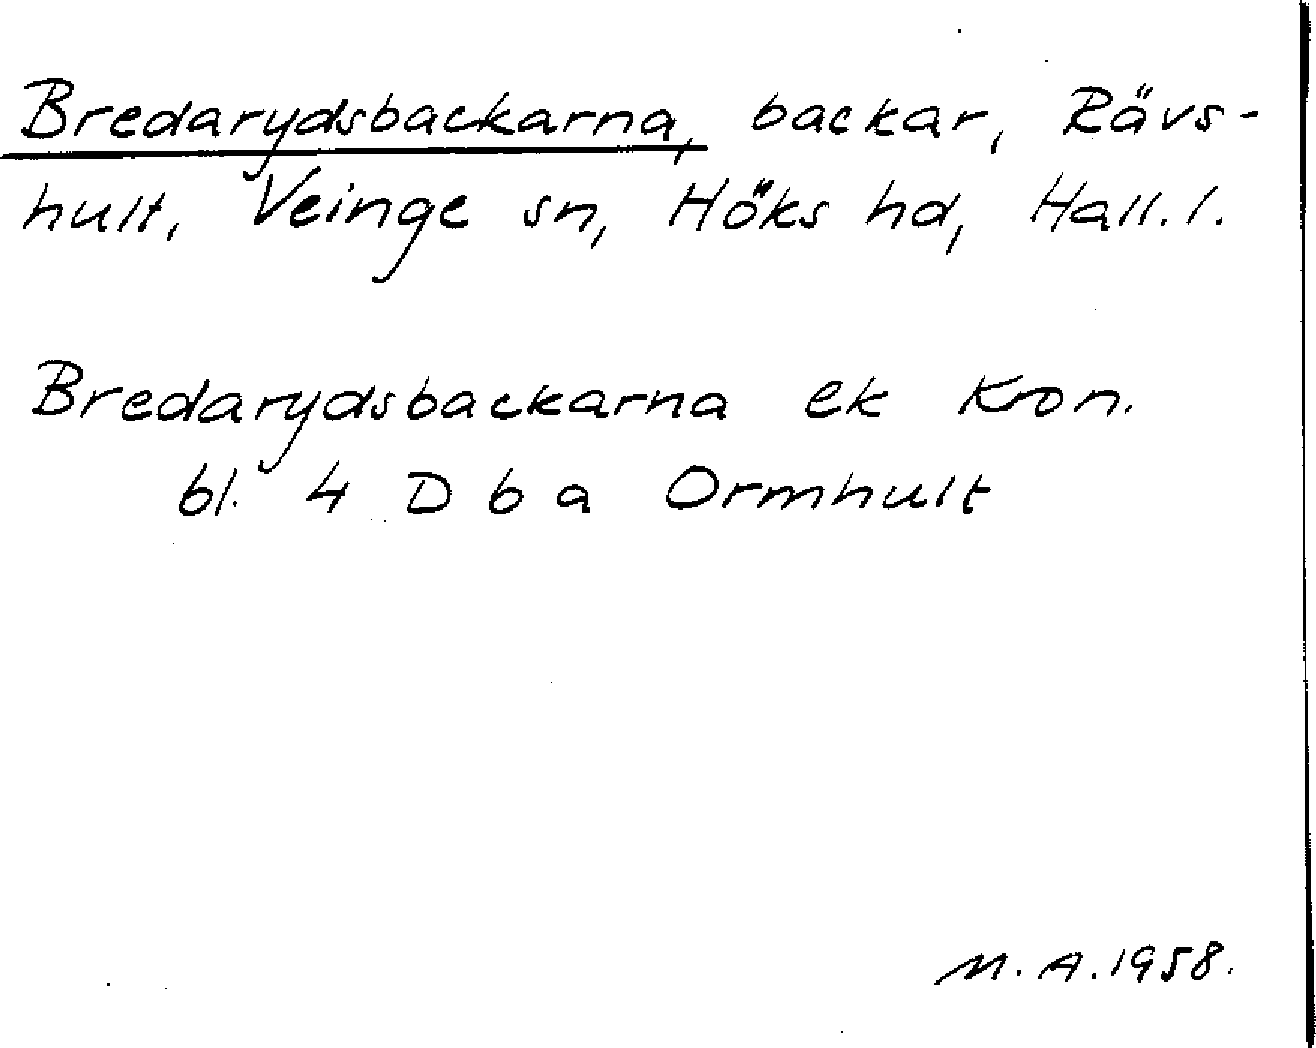 Bredarydsbackarna, backar, Rävs-
hult, Veinge sn, Höks hd, Hall. l.
Bredarydsbackarna ek Kon.
bl. 4 D b a Ormhult
M. A. 1958.